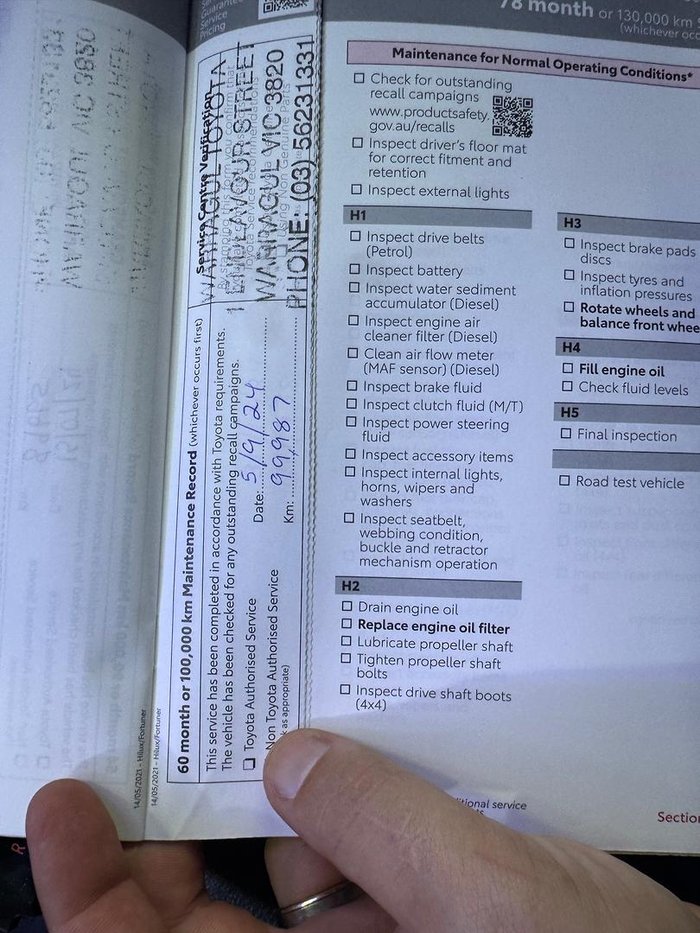 60 month or 100,000 km Maintenance Record (whichever occurs first)
This service has been completed in accordance with Toyota requirements.
The vehicle has been checked for any outstanding recall campaigns.
Toyota Authorised Service
Non Toyota Authorised Service
k as appropriate)
Date: 5/9/24
Km: 99987
Service Centre Verification
WARRAGUL TOYOTA
1 ENDEAVOUR STREET
WARRAGUL VIC 3820
PHONE: (03) 56231331
Service
Pricing
14/05/2021 - Hilux/Fortuner
14/05/2021 - Hilux/Fortuner
78 month or 130,000 km
(whichever occ
Maintenance for Normal Operating Conditions*
Check for outstanding
recall campaigns
www.productsafety.
gov.au/recalls
Inspect driver's floor mat
for correct fitment and
retention
Inspect external lights
H1
Inspect drive belts
(Petrol)
Inspect battery
Inspect water sediment
accumulator (Diesel)
Inspect engine air
cleaner filter (Diesel)
Clean air flow meter
(MAF sensor) (Diesel)
Inspect brake fluid
Inspect clutch fluid (M/T)
Inspect power steering
fluid
Inspect accessory items
Inspect internal lights,
horns, wipers and
washers
Inspect seatbelt,
webbing condition,
buckle and retractor
mechanism operation
H2
Drain engine oil
Replace engine oil filter
Lubricate propeller shaft
Tighten propeller shaft
bolts
Inspect drive shaft boots
(4x4)
H3
Inspect brake pads
discs
Inspect tyres and
inflation pressures
Rotate wheels and
balance front whee
H4
Fill engine oil
Check fluid levels
H5
Final inspection
Road test vehicle
itional service
Section